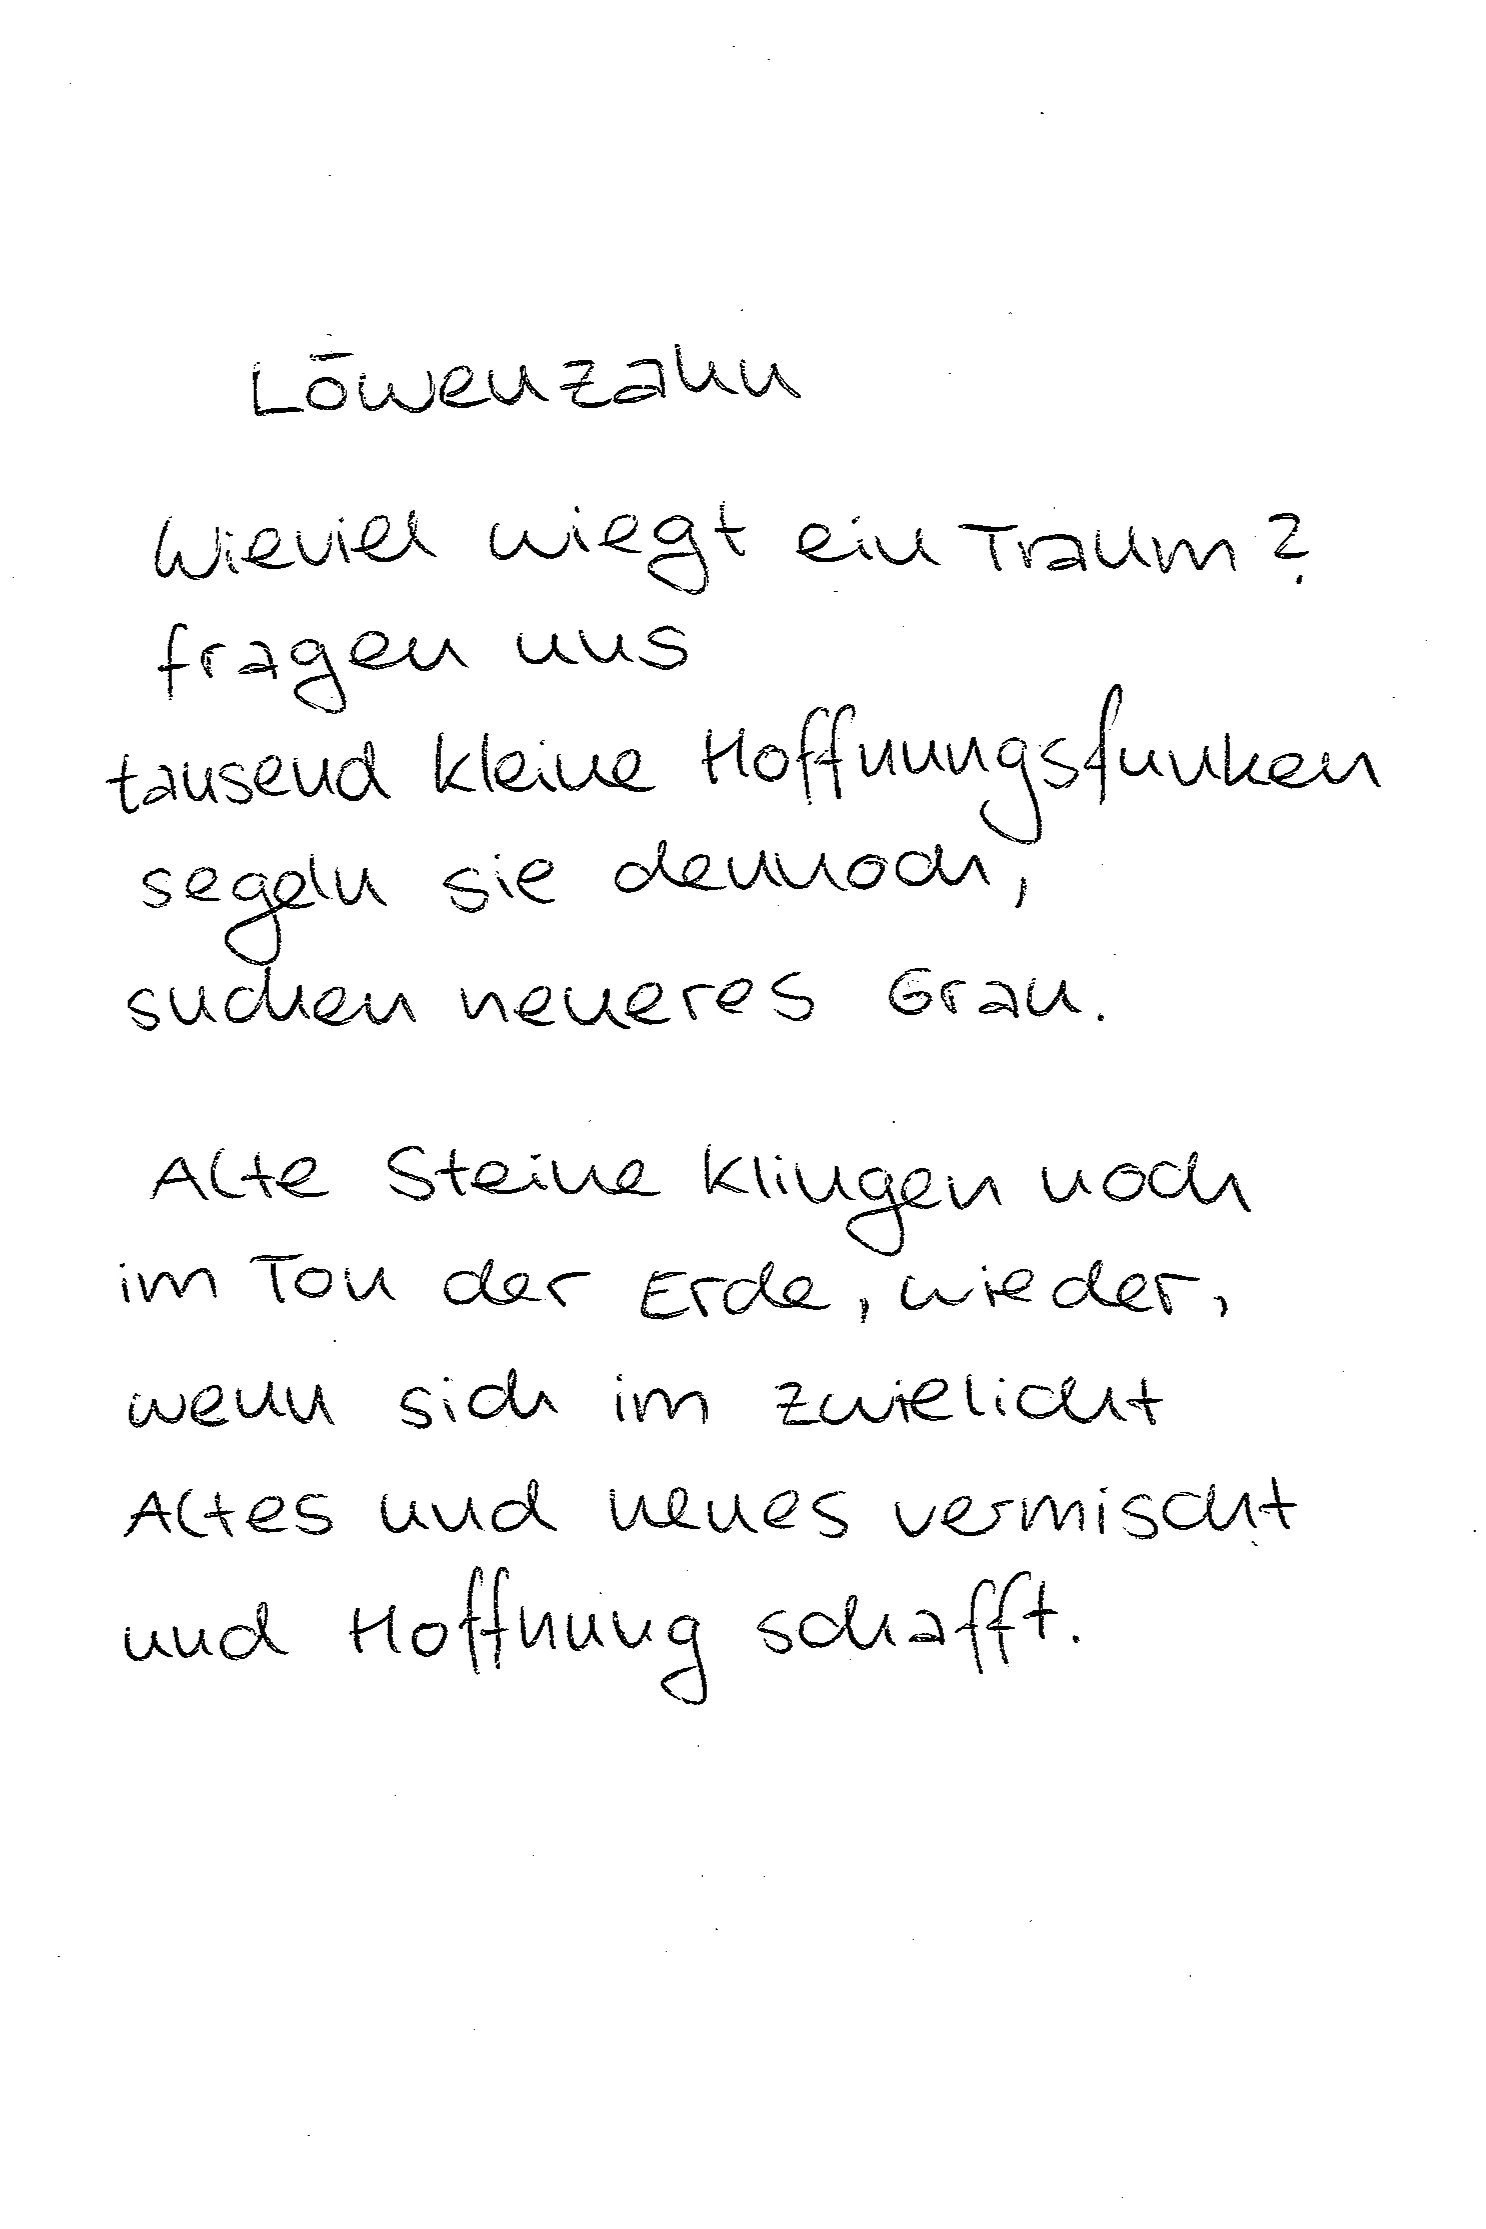 Löwenzahn
Wieviel wiegt ein Traum?
fragen uns
tausend kleine Hoffnungsfunken
segeln sie dennoch,
suchen neueres Grau.
Alte Steine klingen noch
im Ton der Erde, wieder,
wenn sich im Zwielicht
Altes und neues vermischt
und Hoffnung schafft.